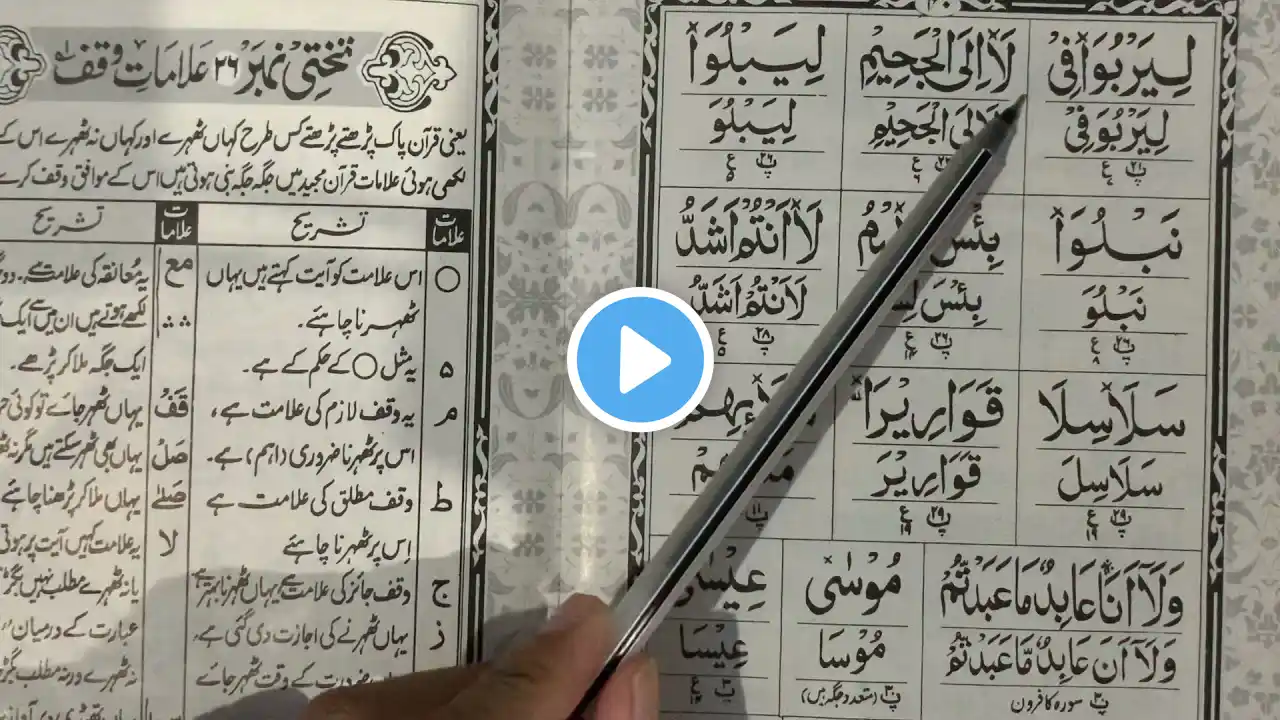 لِيَرْبُوَا۟ فِىْ
لَا۟اِلَى الْجَحِيْمِ
لِيَبْلُوَا۟
لِيَرْبُوَ فِىْ
الْجَحِيْمِ
لِيَبْلُوَ
نَبْلُوَا۟
بِئْسَ
لَا۟ اَنْتُمْ اَشَدُّ
نَبْلُوَ
بِئْسَ
لَاَنْتُمْ اَشَدُّ
سَلَاسِلَا۟
قَوَارِيْرَا۟
سَلَاسِلَ
قَوَارِيْرَ
وَلَآ اَنَا۟ عَابِدٌ مَّا عَبَدْتُّمْ
مُوْسٰى
عِيْسٰى
وَلَآ اَنَ عَابِدٌ مَّا عَبَدْتُّمْ
مُوْسَا
عِيْسَا
سورہ کافرون
(متعدد جگہ میں)
تختی نمبر ۲۶ علاماتِ وقف
یعنی قرآن پاک پڑھتے پڑھتے کس طرح کہاں ٹھہرے اور کہاں نہ ٹھہرے اس کے
لکھی ہوئی علامات قرآن مجید میں جگہ جگہ بنی ہوتی ہیں اس کے موافق وقف کرے
علامات تشریح علامات تشریح
○ اس علامت کو آیت کہتے ہیں یہاں
ٹھہرنا چاہئے۔
۵ یہ مثل ○ کے حکم کے ہے۔
م یہ وقف لازم کی علامت ہے،
اس پر ٹھہرنا ضروری (اہم) ہے۔
ط وقف مطلق کی علامت ہے
اِس پر ٹھہرنا چاہئے
ج وقف جائز کی علامت ہے یہاں ٹھہرنا بہتر ہے
ز یہاں ٹھہرنے کی اجازت دی گئی ہے۔
ضرورت کے وقت ٹھہر جائے
مع یہ مُعانقہ کی علامت ہے۔
∴ ∴ لکھے ہوتے ہیں ان میں سے ایک
ایک جگہ ملا کر پڑھے۔
قف یہاں ٹھہر جائے تو کوئی
صل یہاں بھی ٹھہر سکتے ہیں مگر نہ
صلے یہاں ملا کر پڑھنا چاہئے
لا یہ علامت کہیں آیت پر ہوتی
یا نہ ٹھہرے مطلب نہیں
عبارت کے درمیان
نہ ٹھہرے ورنہ مطلب